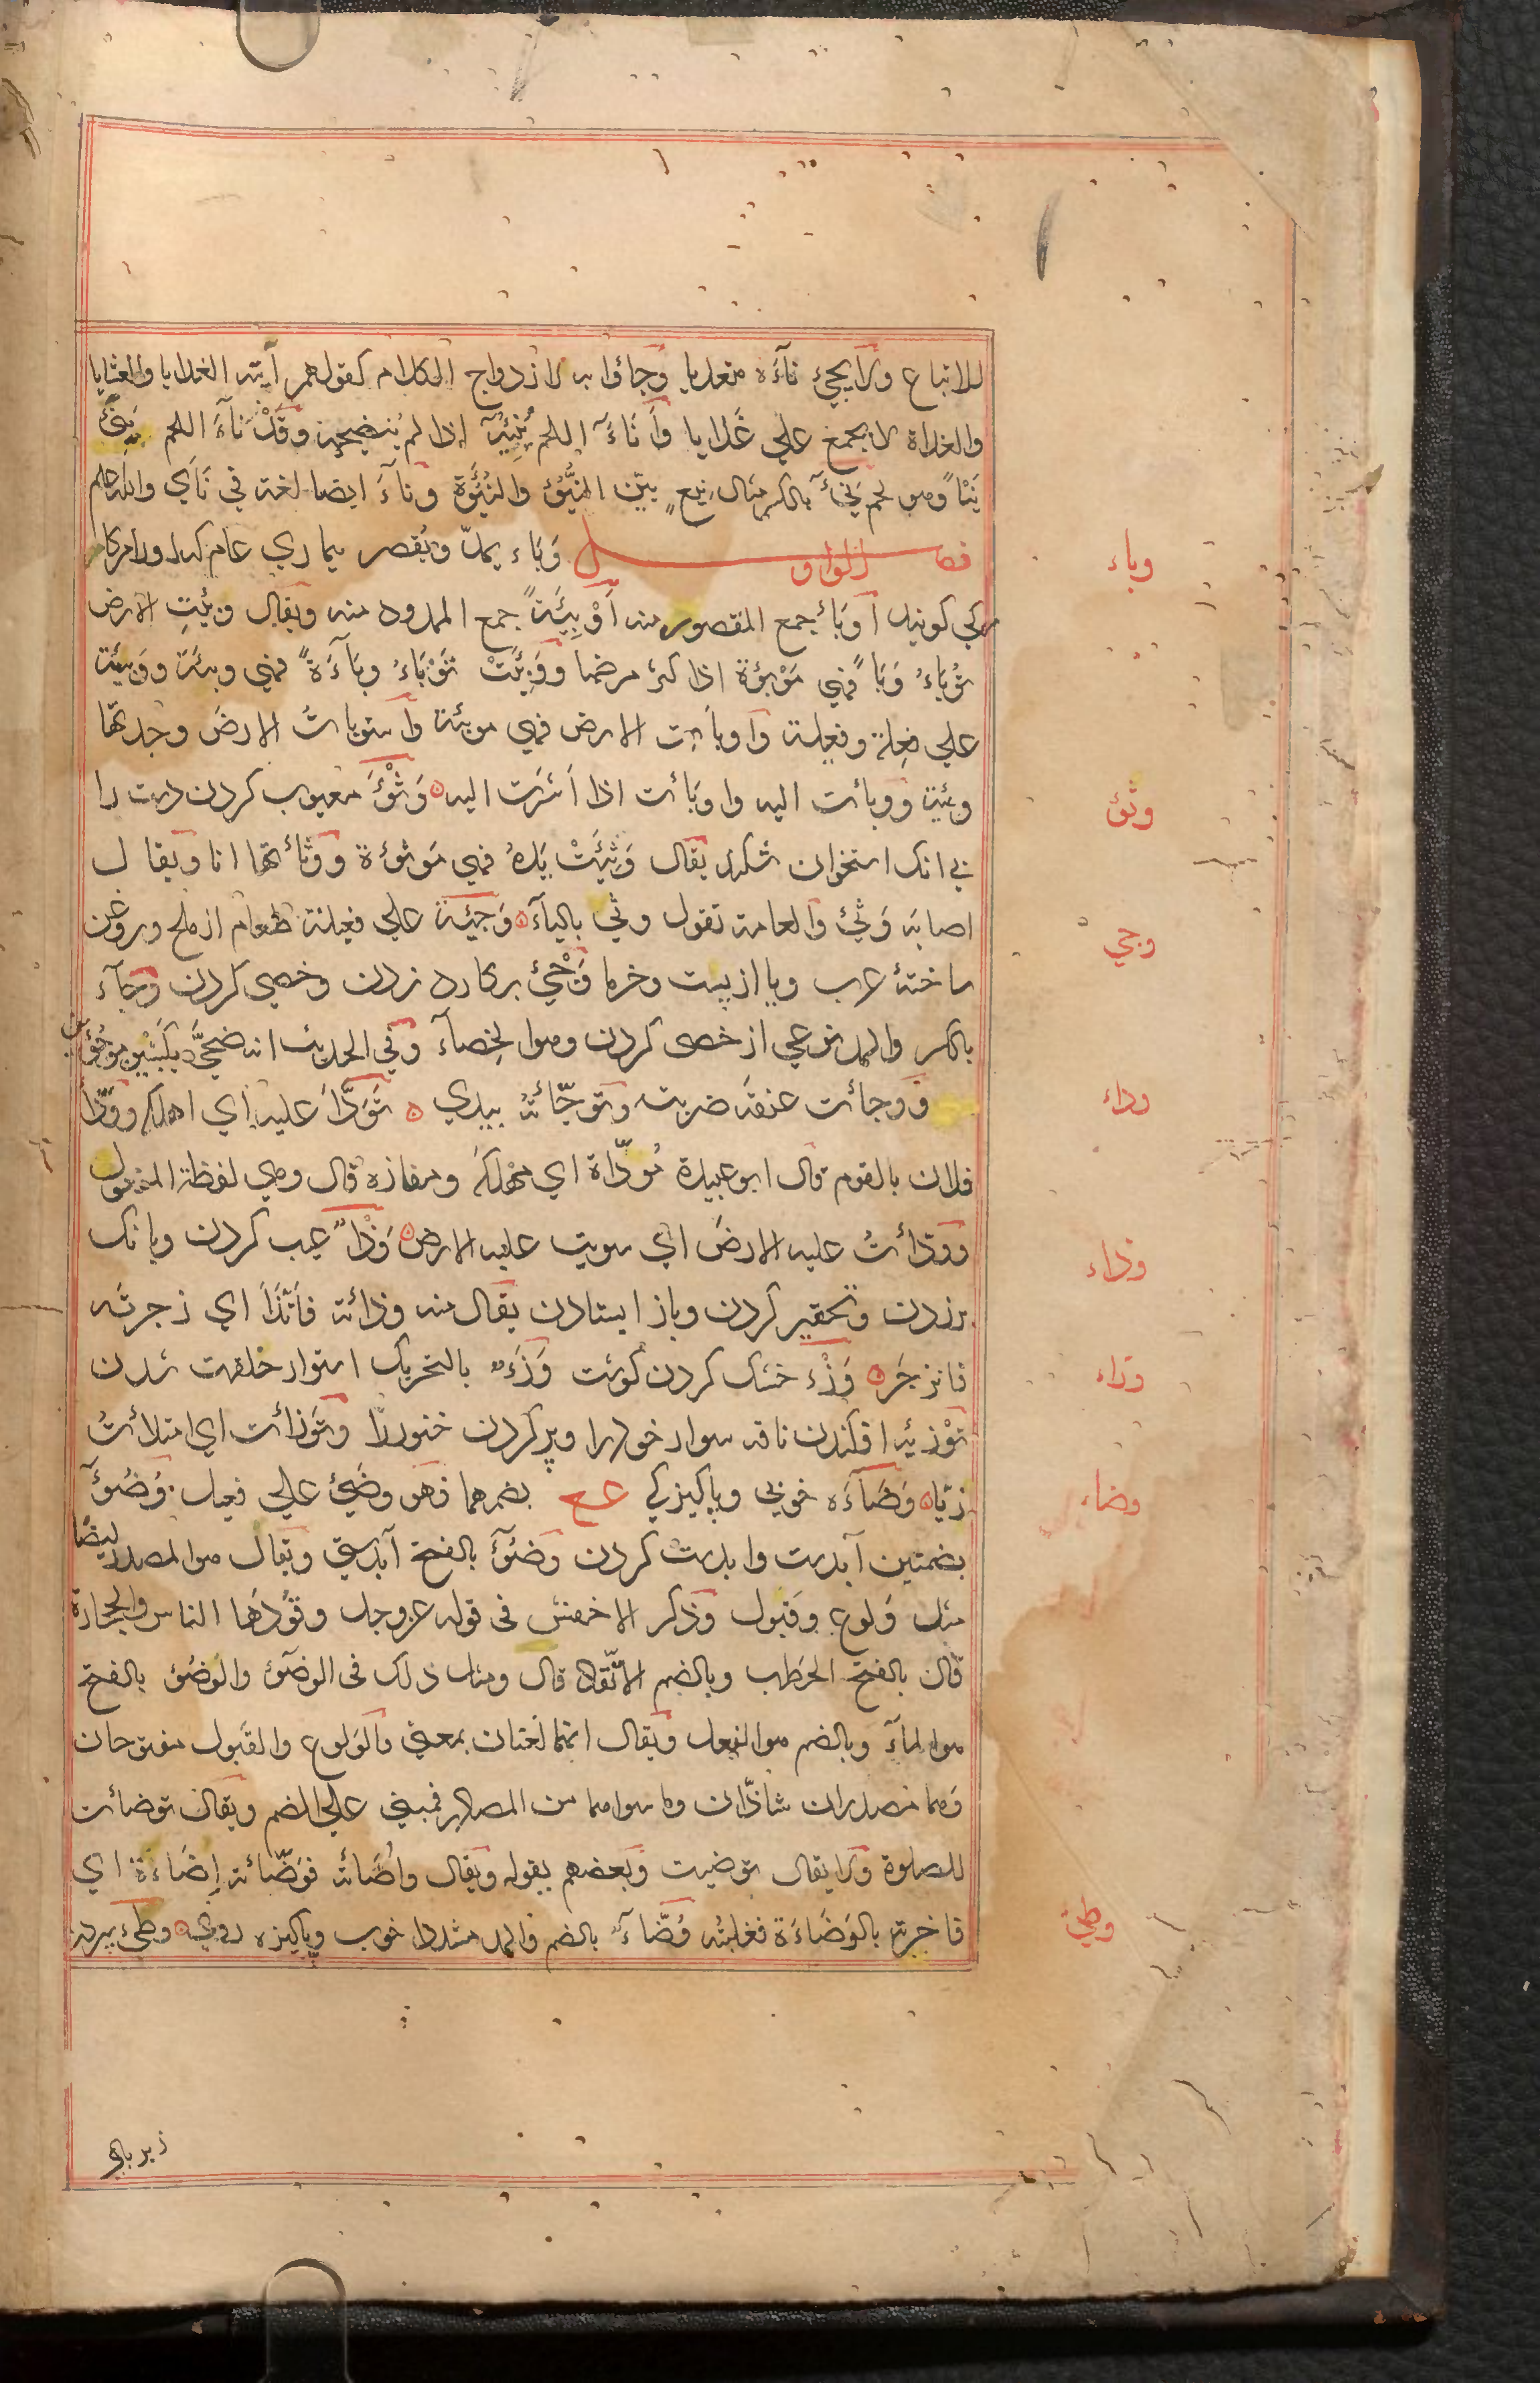 للاتباع ولا يجئ نآءَه متعديا وجاؤا به لازدواج الكلام كقولهم آتيه الغدايا والعشايا
والغداة لا يجمع علي غَدايا وأَنَاءَ اللحم يُنِيْئُ اذا لم يُنضجه وقَدْ نآءَ اللحم يَنِئُ
نَيْاً وهو لحم نِيْءٌ بالكسر مثال نِيعٍ بيّن النُيُّؤ والنُيُؤَة ونآءَ ايضا لغة في نَأَي والله اعلم
فصل الواو وَبَاء يمدّ ويُقصر بيماري عام كه اورا مركامركي كويند
أوبَأ جمع المقصور منه أَوْبِيَّةٌ جمع الممدود منه ويقال وبئتِ الارض
تُوْباءُ وَبَأً فهي مَوْبؤة اذا كثر مرضها ووَبِئَتْ تَوْبَاءُ وبآءَةً فهي وبئة ووَبِيئة
علي فعِلة وفعيلة وأوبأت الارض فهي موبئة واستوبأتُ الارضَ وجدتها
وبئية ووبأت اليه واوبأت اذا أشَرت اليه وَثْؤٌ معيوب كردن دست را
بي انك استخوان شكند يقال وَثِئَتْ يَدهُ فهي مَوثؤءة ووثأتها انا ويقال
اصابه وَثْئ والعامة تقول وثي بالياء وَجيئة علي فعيلة طعام از ملخ وروغن
ساختۀ عرب ويا از پست وخرما وَجْئ بركارد زدن وخصي كردن وجآء
بالكسر والمد نوعي از خصى كردن وهو الخِصآء وفي الحديث انه ضحّي بكبشين موجوئين
ووجأت عنقه ضربته وتوجّأته بيدي تَودّأ عليه اي اهلكه وودّأ
فلان بالقوم قال ابو عبيدة مُودّأة اي مهلكة ومفازه قال وهي لفظة المفعول
وودّأتُ عليه الارضَ اي سويت عليه الارض وَذْأً عيب كردن وبانك
برزدن وتحقير كردن وباز ايستادن يقال منه وذأته فاتّذأ اي زجرته
فانزجَر وَزْء خشك كردن كوشت وَزَءٌ بالتحريك استوار خلقت شدن
تَوْزئيه افكندن ناقه سوار خود را وپر كردن خنور را وتَوزأت اي امتلأتُ
رَيًّا وَضَآءَه خوبي وپاكيزكي بضمهما فهو وضيئ علي فعيل وُضُؤٌ
بضمتين آبدست وابدست كردن وَضُؤٌ بالفتح آبدستي ويقال هو المصدر ايضا
مثل وَلوع وقَبول وذكر الاخفش في قوله عز وجل وقُودُها الناس والحجارة
قال بالفتح الحَطب وبالضم الاتّقاد قال ومثل ذلك في الوضؤ والوضُؤ بالفتح
هو المآء وبالضم هو الفعل ويقال انهما لغتان بمعني والوَلوع والقَبول مفتوحان
وهما مصدران شاذّان وما سواهما من المصادر فمبني علي الضم ويقال توضأت
للصلوة ولا يقال توضيت وبعضهم يقوله ويقال واضأته فوضّأته إضاءة اي
فاخرته بالوَضاءَة فغلبته وُضّاءٌ بالضم والمد مشددا خوب وپاكيزه روي وطئ بپرده
وباء
وثؤ
وجي
وداء
وذاء
وزاء
وضاء
وطي
زير پاي